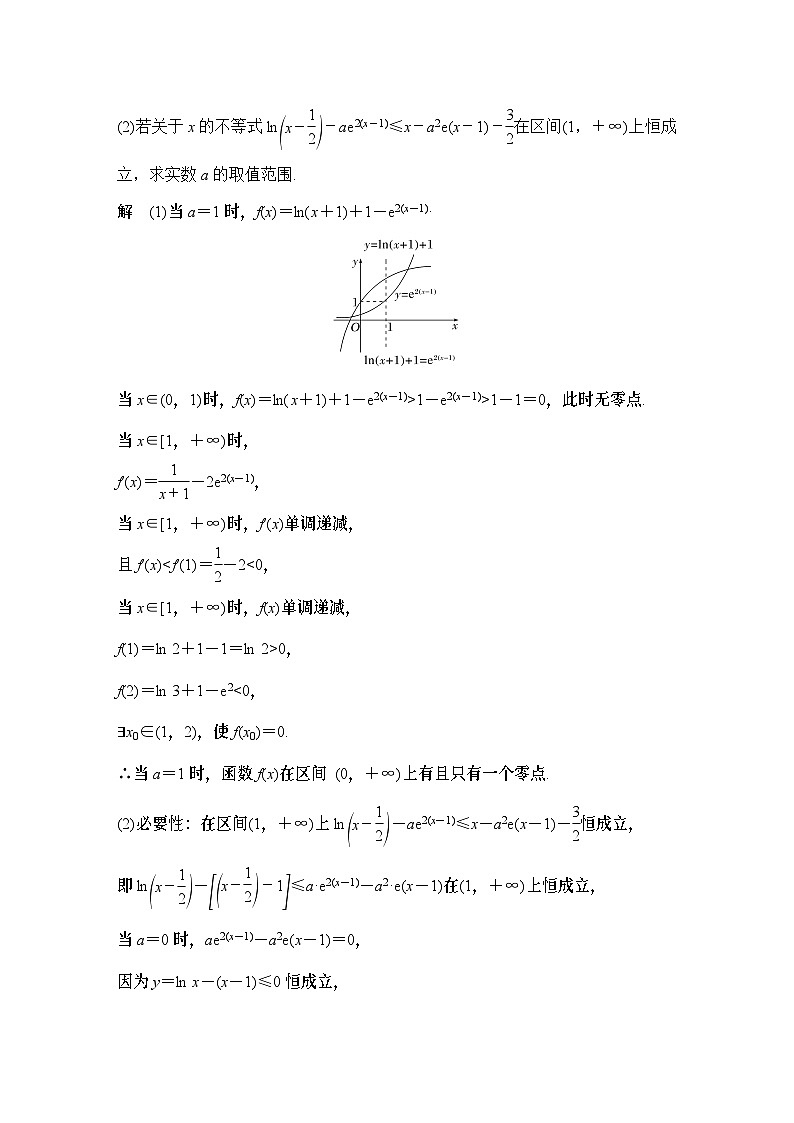 (2)若关于x的不等式ln(x-1/2)-ae^{2(x-1)}≤x-a²e(x-1)-3/2在区间(1,+∞)上恒成
立,求实数a的取值范围.
解 (1)当a=1时,f(x)=ln(x+1)+1-e^{2(x-1)}.
y=ln(x+1)+1
y
1
y=e^{2(x-1)}
O 1 x
ln(x+1)+1=e^{2(x-1)}
当x∈(0,1)时,f(x)=ln(x+1)+1-e^{2(x-1)}>1-e^{2(x-1)}>1-1=0,此时无零点.
当x∈[1,+∞)时,
f′(x)=1/(x+1)-2e^{2(x-1)},
当x∈[1,+∞)时,f′(x)单调递减,
且f′(x)<f′(1)=1/2-2<0,
当x∈[1,+∞)时,f(x)单调递减,
f(1)=ln 2+1-1=ln 2>0,
f(2)=ln 3+1-e²<0,
∃x₀∈(1,2),使f(x₀)=0.
∴当a=1时,函数f(x)在区间 (0,+∞)上有且只有一个零点.
(2)必要性:在区间(1,+∞)上ln(x-1/2)-ae^{2(x-1)}≤x-a²e(x-1)-3/2恒成立,
即ln(x-1/2)-[(x-1/2)-1]≤a·e^{2(x-1)}-a²·e(x-1)在(1,+∞)上恒成立,
当a=0时,ae^{2(x-1)}-a²e(x-1)=0,
因为y=ln x-(x-1)≤0恒成立,